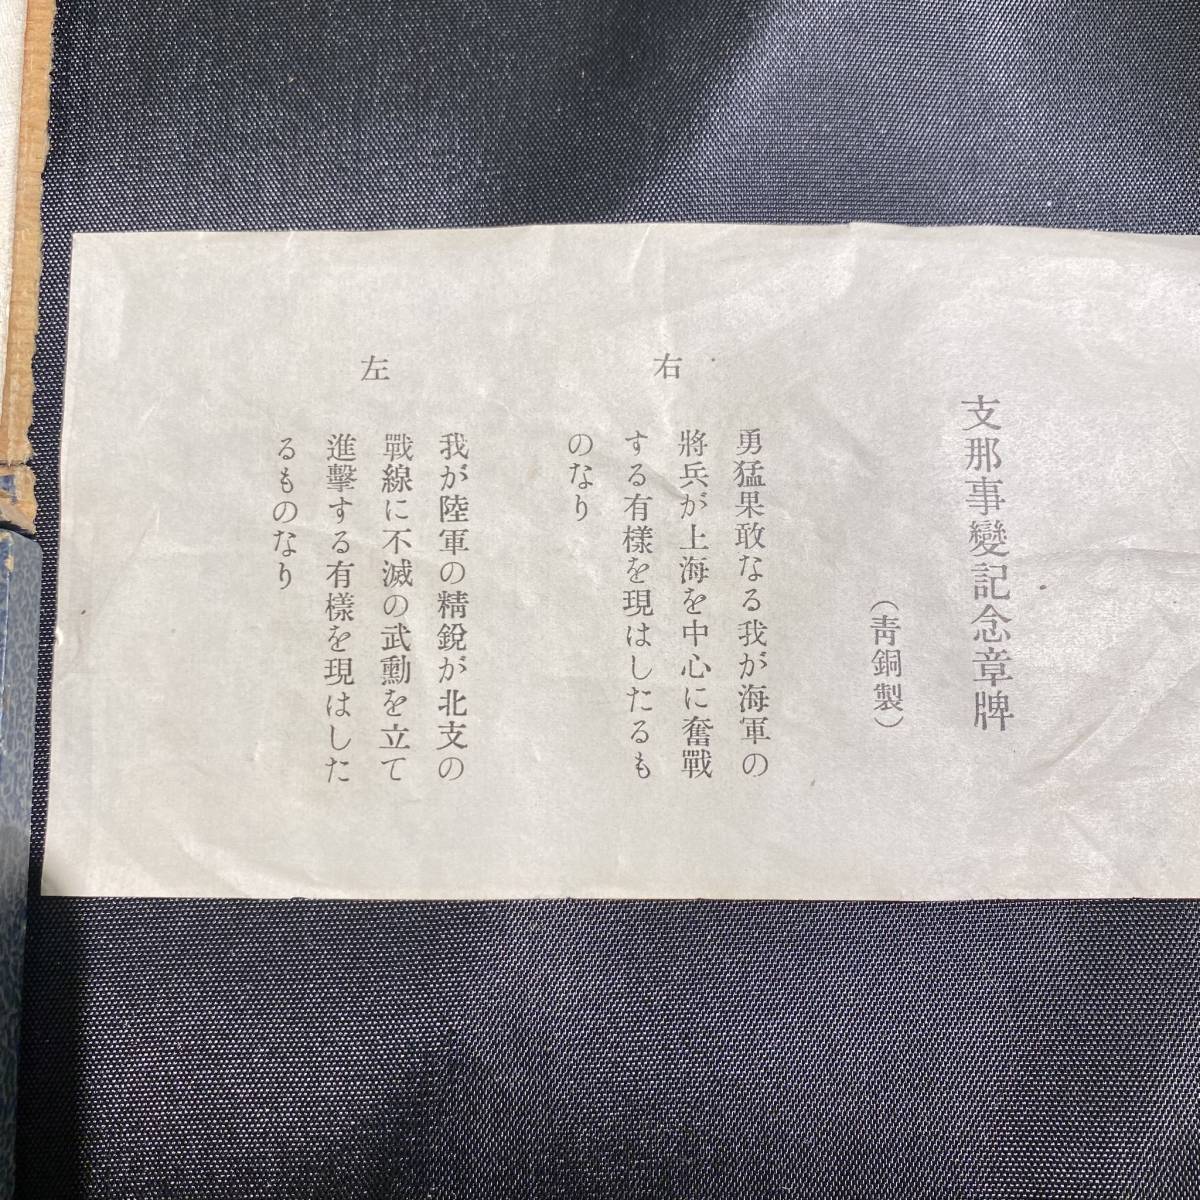 支那事變記念章牌
(靑銅製)
右
勇猛果敢なる我が海軍の
將兵が上海を中心に奮戰
する有樣を現はしたるも
のなり
左
我が陸軍の精銳が北支の
戰線に不滅の武勳を立て
進擊する有樣を現はした
るものなり